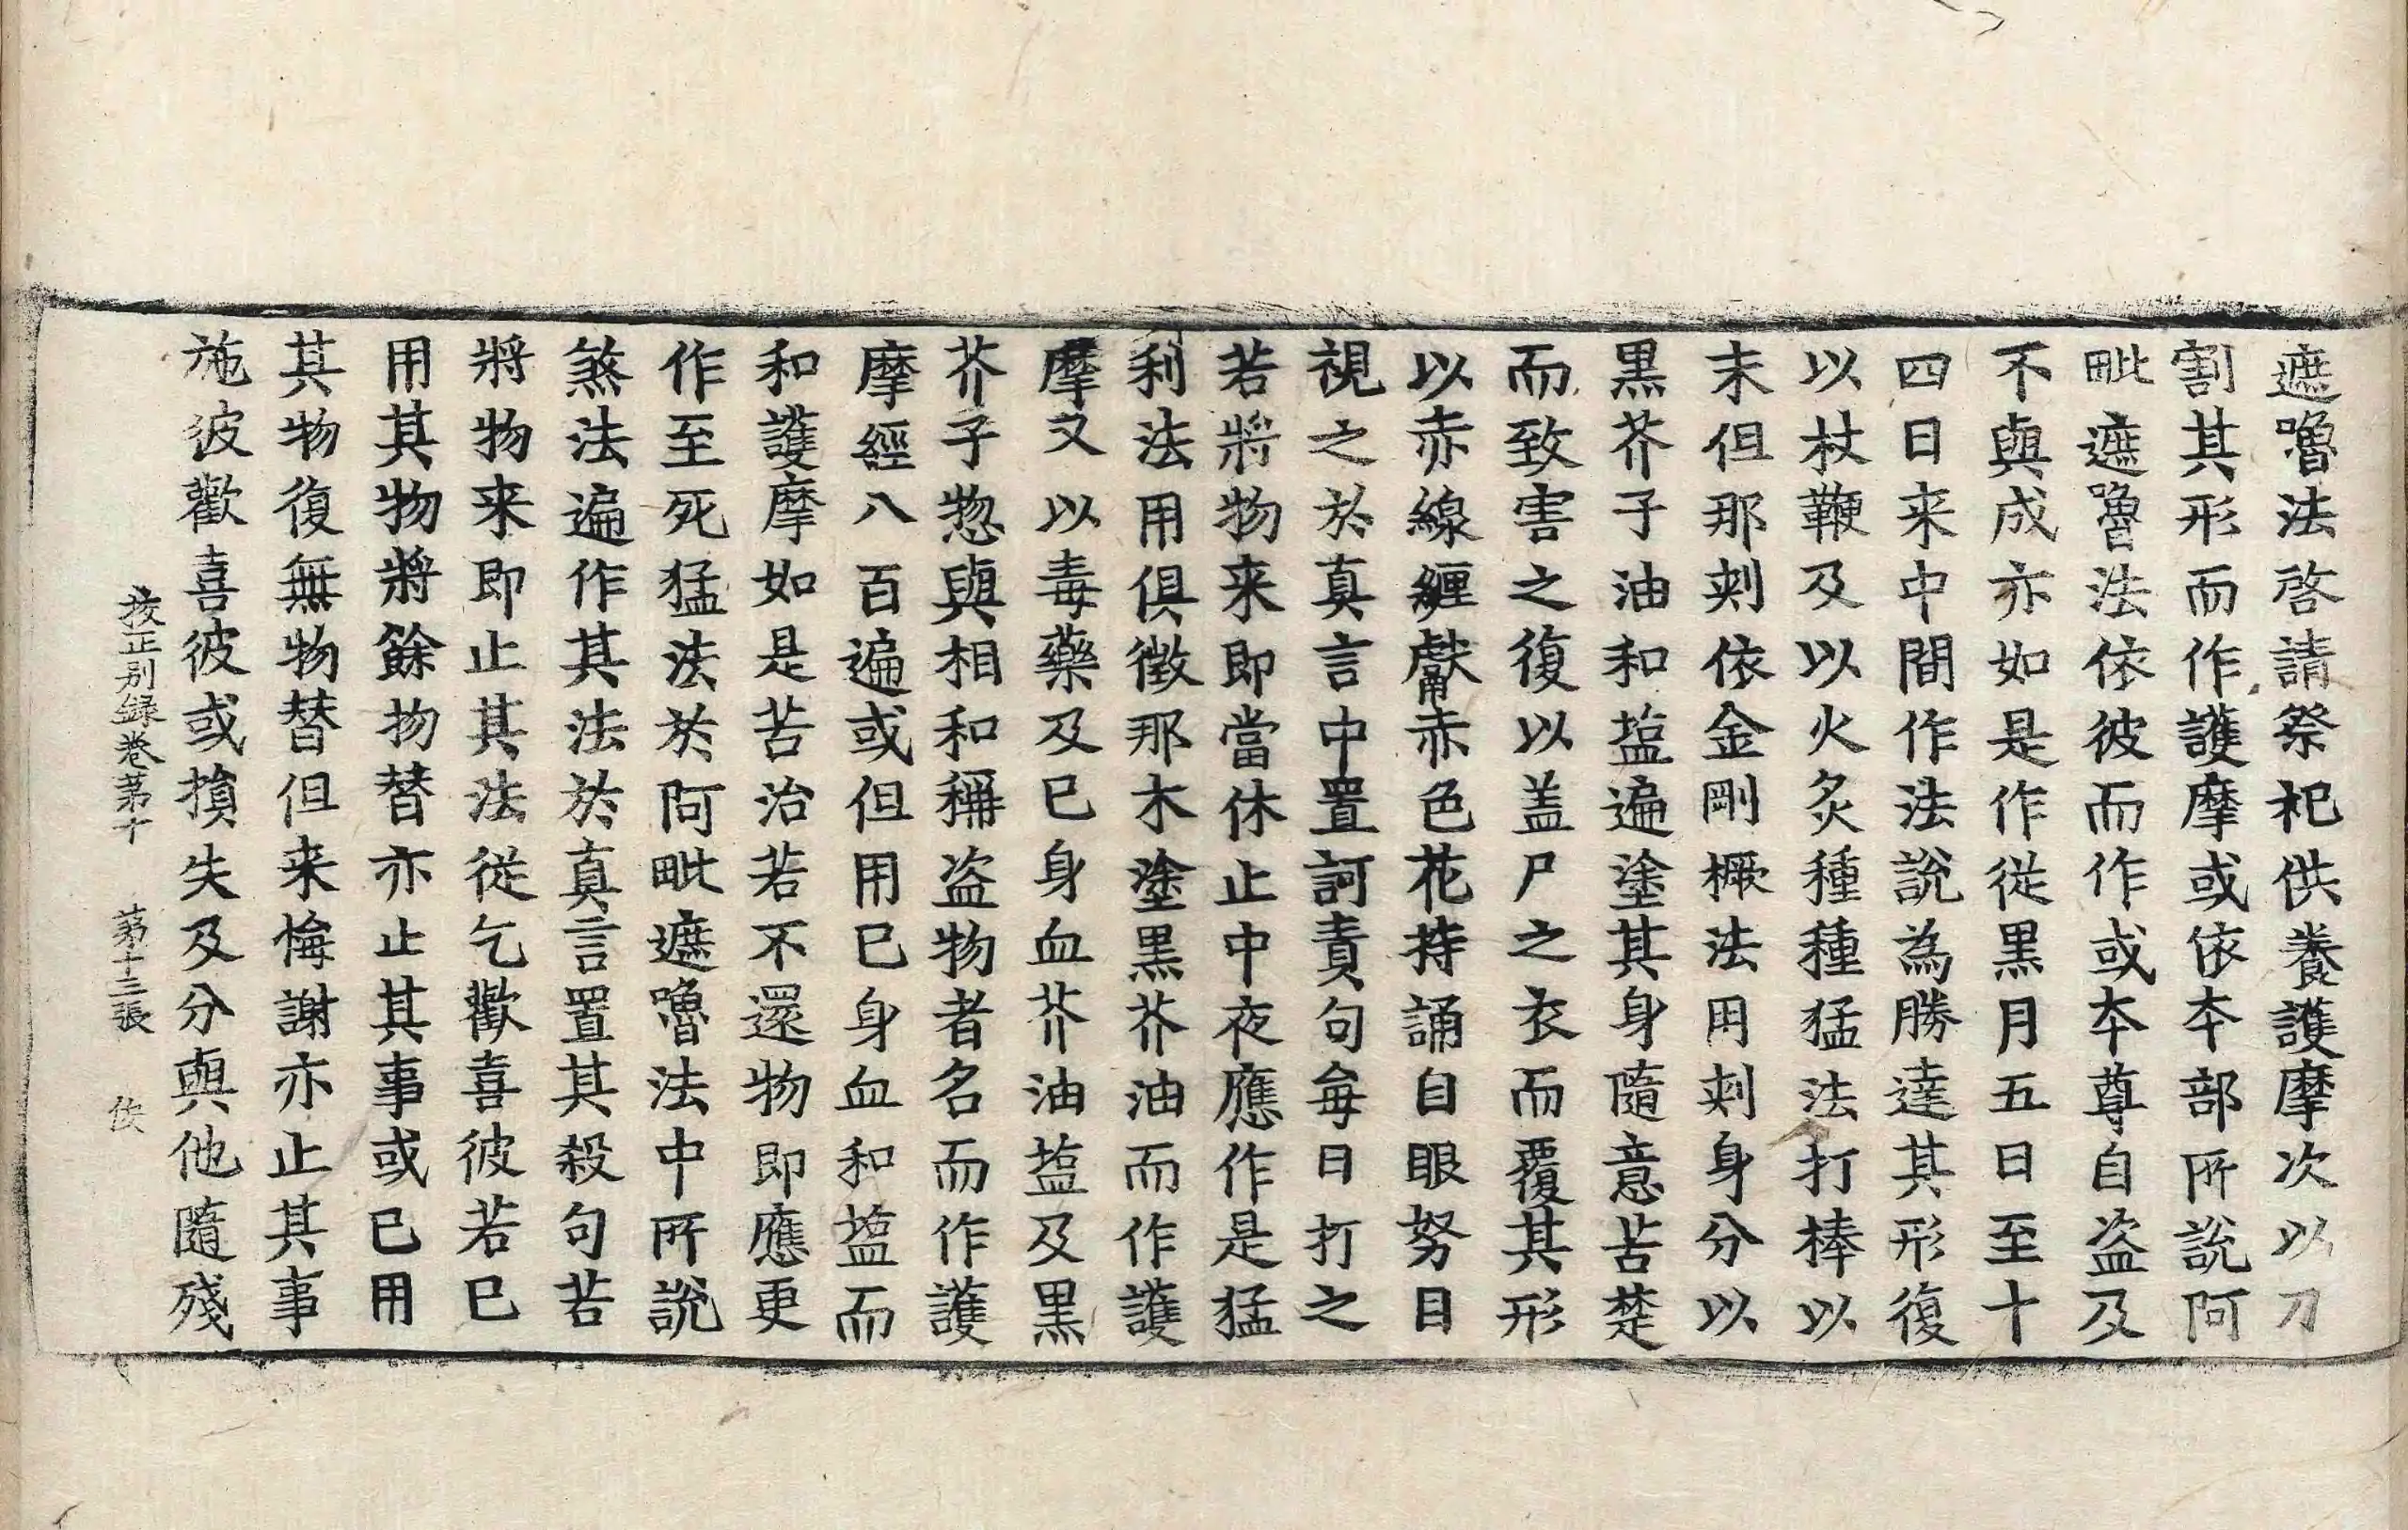 遮嚕法啓請祭祀供養護摩次以刀
割其形而作護摩或依本部所說阿
毗遮嚕法依彼而作或本尊自盜及
不與成亦如是作從黑月五日至十
四日来中間作法說為勝達其形復
以杖鞭及以火炙種種猛法打棒以
末但那刾依金剛橛法用刾身分以
黑芥子油和塩遍塗其身隨意苦楚
而致害之復以盖尸之衣而覆其形
以赤線纒獻赤色花持誦自眼努目
視之於真言中置訶責句每日打之
若將物来即當休止中夜應作是猛
利法用俱徵那木塗黑芥油而作護
摩又以毒藥及已身血芥油塩及黑
芥子惣與相和稱盜物者名而作護
摩經八百遍或但用巳身血和塩而
和護摩如是苦治若不還物即應更
作至死猛法於阿毗遮嚕法中所說
煞法遍作其法於真言置其殺句若
將物来即止其法從乞歡喜彼若巳
用其物將餘物替亦止其事或已用
其物復無物替但来悔謝亦止其事
施彼歡喜彼或損失及分與他隨殘
挍正别録卷苐十 苐十三張 俠